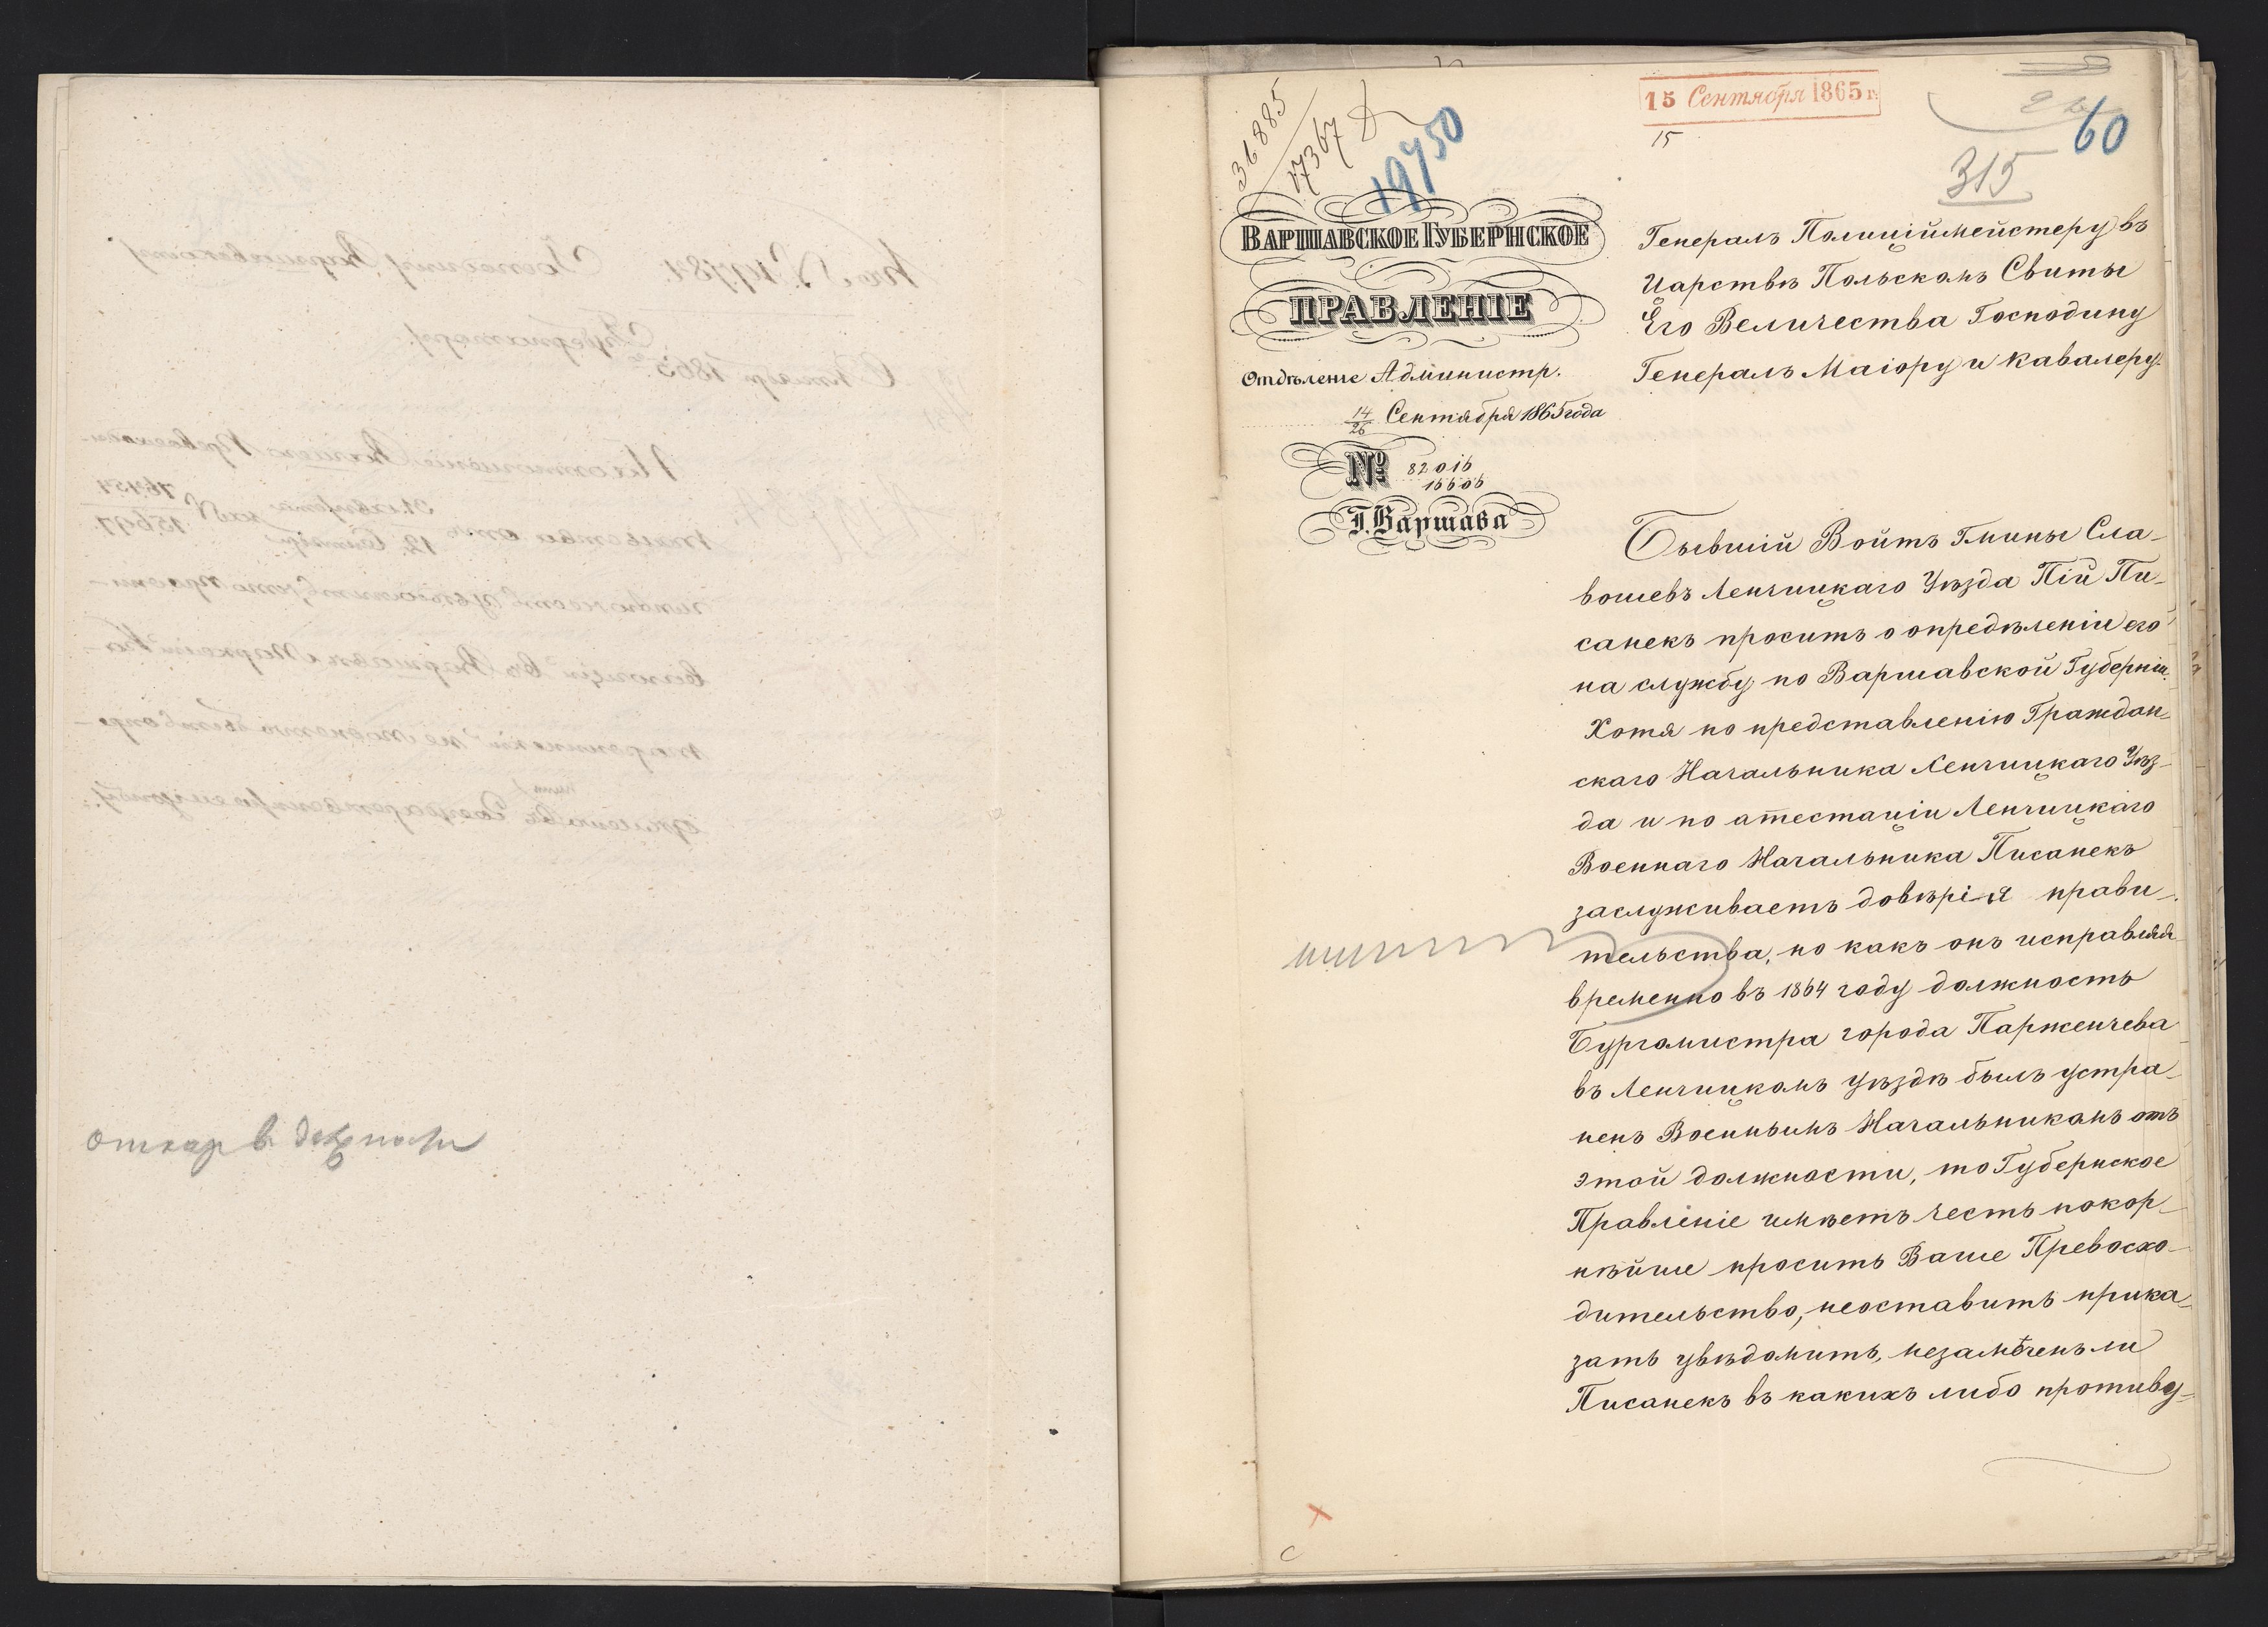 15 Сентября 1865 г.
15
36885
17367
19750
60
315
ВАРШАВСКОЕ ГУБЕРНСКОЕ
ПРАВЛЕНІЕ
Отдѣленіе Администр.
14/26 Сентября 1865 года
№ 82016
16606
Г. Варшава
Генералъ Полиціймейстеру въ
Царствѣ Польскомъ Свиты
Его Величества Господину
Генералъ Маіору и Кавалеру.
Бывшій Войтъ Гмины Сла-
вошевъ Ленчицкаго Уѣзда Пій Пи-
санекъ проситъ о опредѣленіи его
на службу по Варшавской Губерніи.
Хотя по представленію Граждан-
скаго Начальника Ленчицкаго Уѣз-
да и по атестаціи Ленчицкаго
Военнаго Начальника Писанекъ
заслуживаетъ довѣрія прави-
тельства, но какъ онъ исправляя
временно въ 1864 году должность
Бургомистра города Парженчева
въ Ленчицкомъ уѣздѣ былъ устра-
ненъ Военнымъ Начальникомъ отъ
этой должности, то Губернское
Правленіе имѣетъ честь покор-
нѣйше просить Ваше Превосхо-
дительство, неоставить прика-
зать увѣдомить, незамѣченъ ли
Писанекъ въ какихъ либо противу-